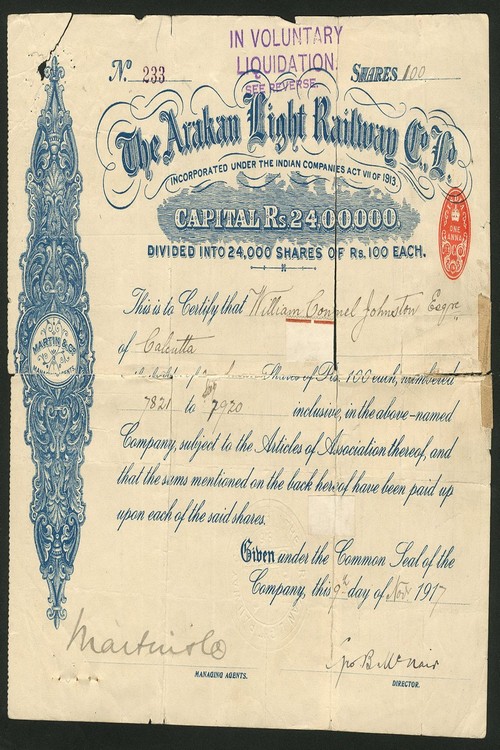 IN VOLUNTARY
LIQUIDATION.
SEE REVERSE.
No. 233 SHARES 100
The Arakan Light Railway Co. Ld.
INCORPORATED UNDER THE INDIAN COMPANIES ACT VII OF 1913.
CAPITAL Rs 24,00,000
DIVIDED INTO 24,000 SHARES OF Rs. 100 EACH.
ONE
ANNA
This is to Certify that William Connel Johnston Esqre
of Calcutta
Shares of Rs. 100 each, numbered
7821 to 7920 inclusive, in the above-named
Company, subject to the Articles of Association thereof, and
that the sums mentioned on the back hereof have been paid up
upon each of the said shares.
Given under the Common Seal of the
Company, this 9th day of Novr 1917
MARTIN & Co
MANAGING AGENTS.
Martin & Co
MANAGING AGENTS.
Geo B McNair
DIRECTOR.